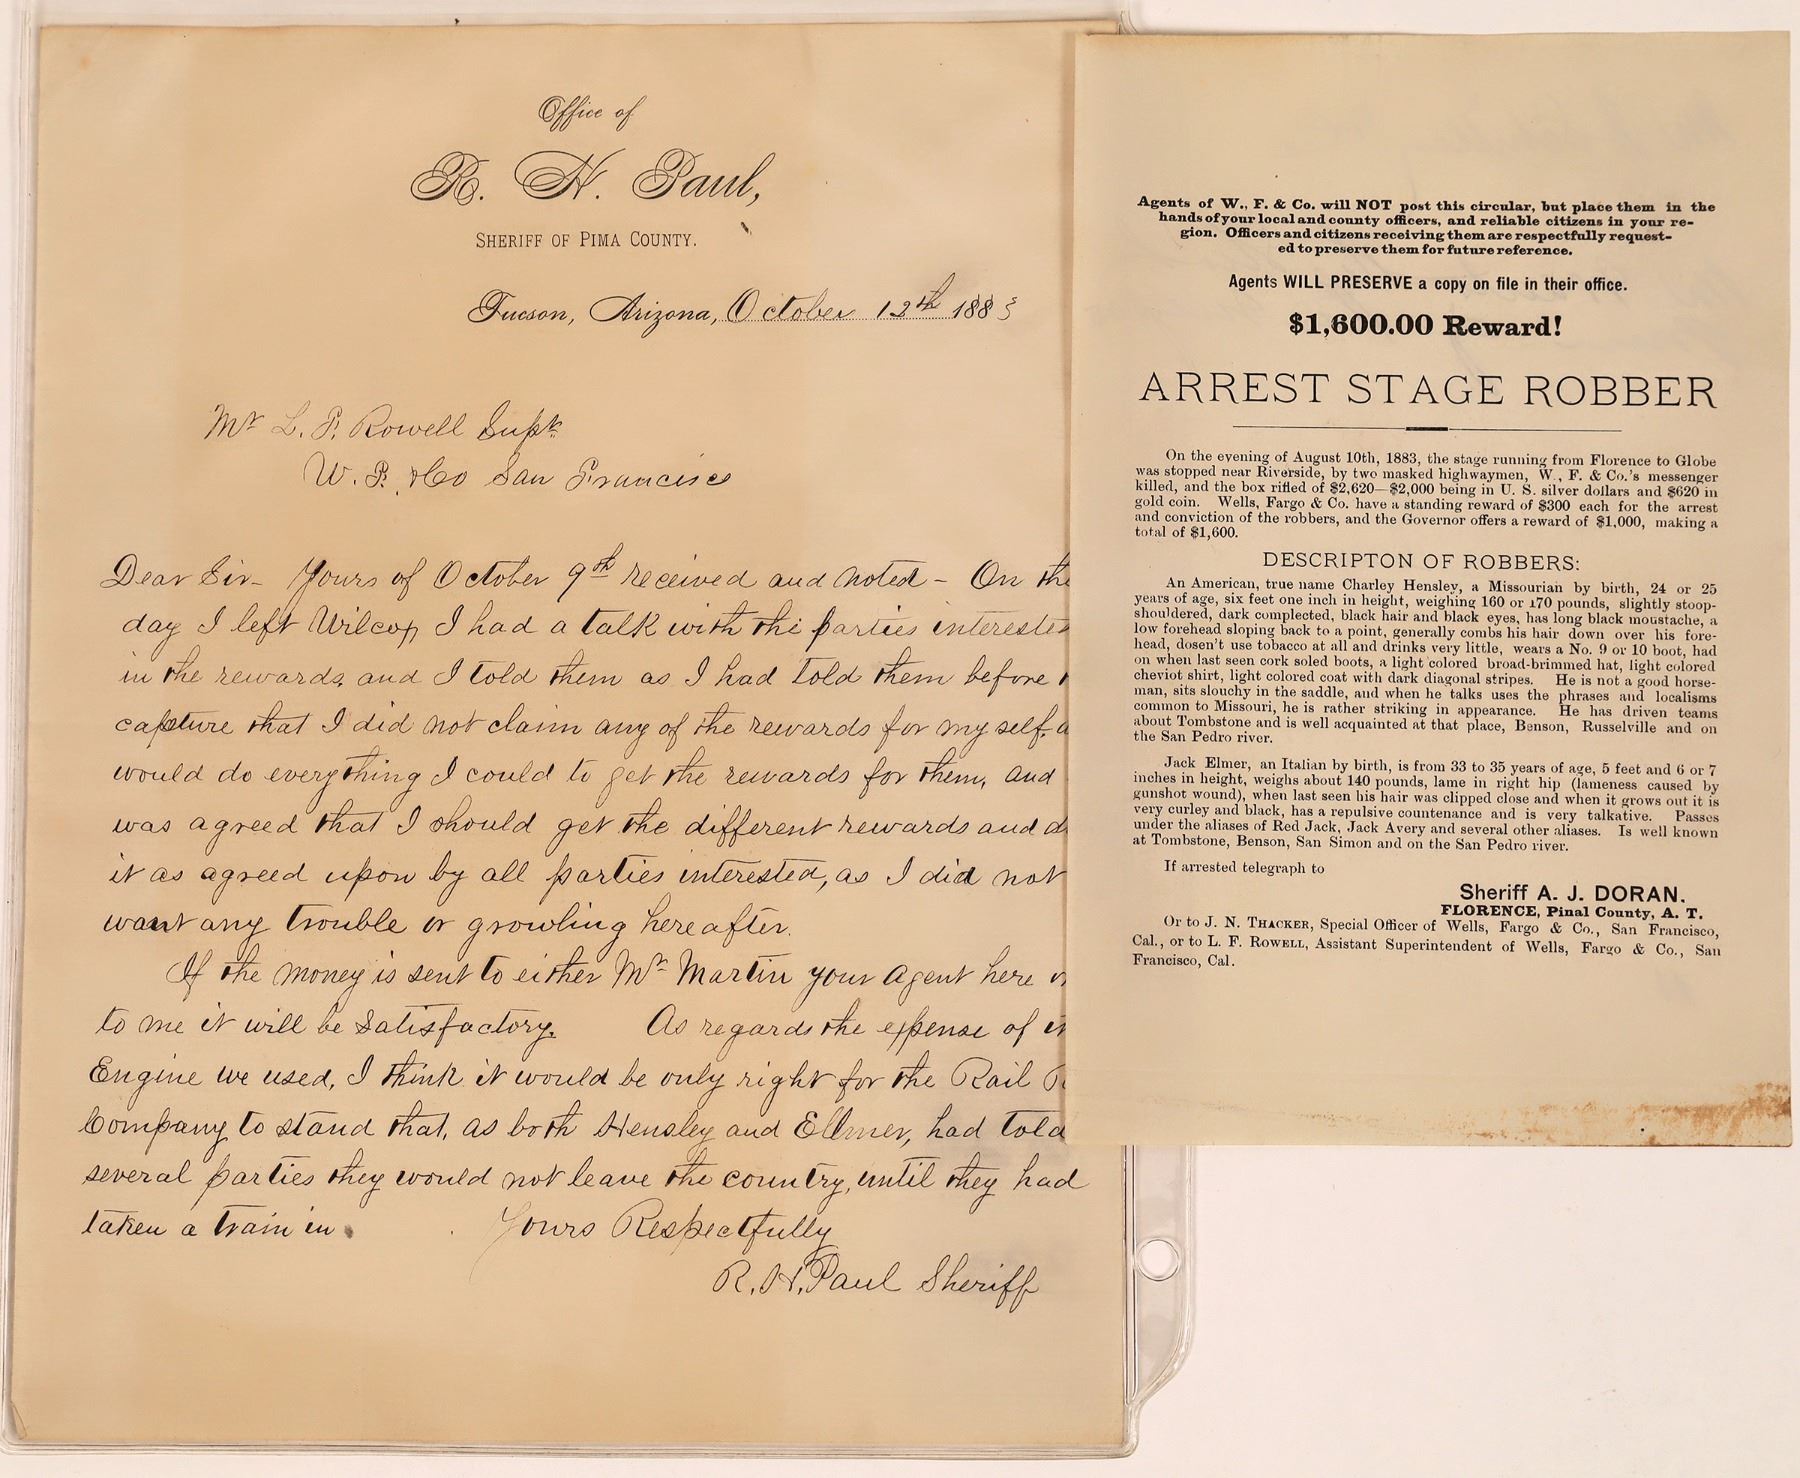 Office of
R. H. Paul,
SHERIFF OF PIMA COUNTY.
Tucson, Arizona, October 12th 1883
Mr L. F. Rowell Supt.
W. F. & Co San Francisco
Dear Sir - Yours of October 9th received and noted - On the
day I left Wilcox, I had a talk with the parties interested
in the rewards, and I told them as I had told them before
capture that I did not claim any of the rewards for my self,
would do everything I could to get the rewards for them, and
was agreed that I should get the different rewards and
it as agreed upon by all parties interested, as I did not
want any trouble or growling hereafter.
If the money is sent to either Mr Martin your agent here
to me it will be satisfactory. As regards the expense of
Engine we used, I think it would be only right for the Rail
Company to stand that, as both Hensley and Ellmer, had told
several parties they would not leave the country, until they had
taken a train in. Yours Respectfully
R. H. Paul Sheriff
Agents of W., F. & Co. will NOT post this circular, but place them in the
hands of your local and county officers, and reliable citizens in your re-
gion. Officers and citizens receiving them are respectfully request-
ed to preserve them for future reference.
Agents WILL PRESERVE a copy on file in their office.
$1,600.00 Reward!
ARREST STAGE ROBBER
On the evening of August 10th, 1883, the stage running from Florence to Globe
was stopped near Riverside, by two masked highwaymen, W., F. & Co.'s messenger
killed, and the box rifled of $2,620—$2,000 being in U. S. silver dollars and $620 in
gold coin. Wells, Fargo & Co. have a standing reward of $300 each for the arrest
and conviction of the robbers, and the Governor offers a reward of $1,000, making a
total of $1,600.
DESCRIPTON OF ROBBERS:
An American, true name Charley Hensley, a Missourian by birth, 24 or 25
years of age, six feet one inch in height, weighing 160 or 170 pounds, slightly stoop-
shouldered, dark complected, black hair and black eyes, has long black moustache, a
low forehead sloping back to a point, generally combs his hair down over his fore-
head, dosen't use tobacco at all and drinks very little, wears a No. 9 or 10 boot, had
on when last seen cork soled boots, a light colored broad-brimmed hat, light colored
cheviot shirt, light colored coat with dark diagonal stripes. He is not a good horse-
man, sits slouchy in the saddle, and when he talks uses the phrases and localisms
common to Missouri, he is rather striking in appearance. He has driven teams
about Tombstone and is well acquainted at that place, Benson, Russelville and on
the San Pedro river.
Jack Elmer, an Italian by birth, is from 33 to 35 years of age, 5 feet and 6 or 7
inches in height, weighs about 140 pounds, lame in right hip (lameness caused by
gunshot wound), when last seen his hair was clipped close and when it grows out it is
very curley and black, has a repulsive countenance and is very talkative. Passes
under the aliases of Red Jack, Jack Avery and several other aliases. Is well known
at Tombstone, Benson, San Simon and on the San Pedro river.
If arrested telegraph to
Sheriff A. J. DORAN.
FLORENCE, Pinal County, A. T.
Or to J. N. THACKER, Special Officer of Wells, Fargo & Co., San Francisco,
Cal., or to L. F. ROWELL, Assistant Superintendent of Wells, Fargo & Co., San
Francisco, Cal.